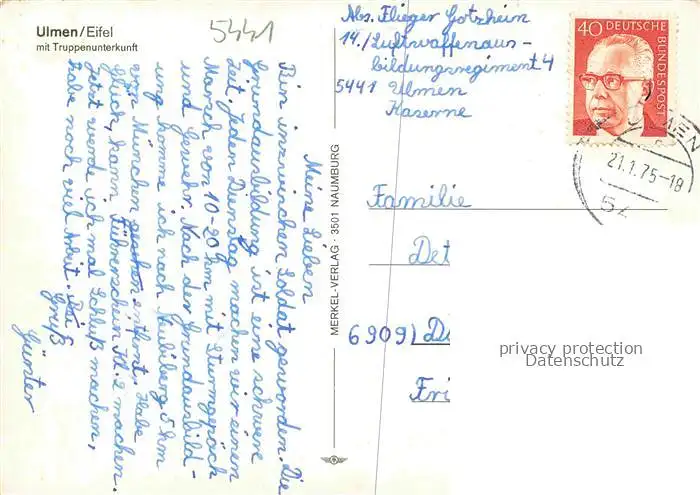 Ulmen/Eifel
mit Truppenunterkunft
5441
Meine Lieben
Bin inzwischen Soldat geworden. Die
Grundausbildung ist eine schwere
Zeit. Jeden Dienstag machen wir einen
Marsch von 10-20 km mit Sturmgepäck
und Gewehr. Nach der Grundausbild-
ung komme ich nach Neubiberg 5 km
von München entfernt. Habe
Glück, kann Führerschein Kl. 2 machen.
Jetzt werde ich mal Schluß machen,
habe noch viel Arbeit.
Gruß
Günter
MERKEL-VERLAG · 3501 NAUMBURG
Abs. Flieger Gotzhein
14./Luftwaffenaus-
bildungsregiment 4
5441 Ulmen
Kaserne
40 DEUTSCHE
BUNDESPOST
21.1.75-18
54
Familie
Det
6909)
Fri
privacy protection
Datenschutz